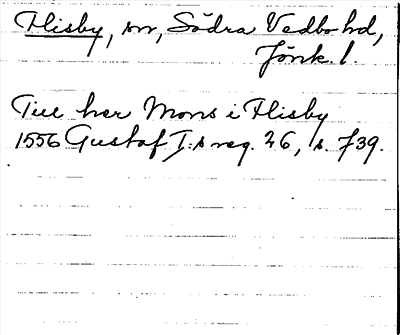 Flisby, sn, Södra Vedbo hd,
Jönk. l.
Till her Mons i Flisby
1556 Gustaf I:s reg. 26, s. 739.